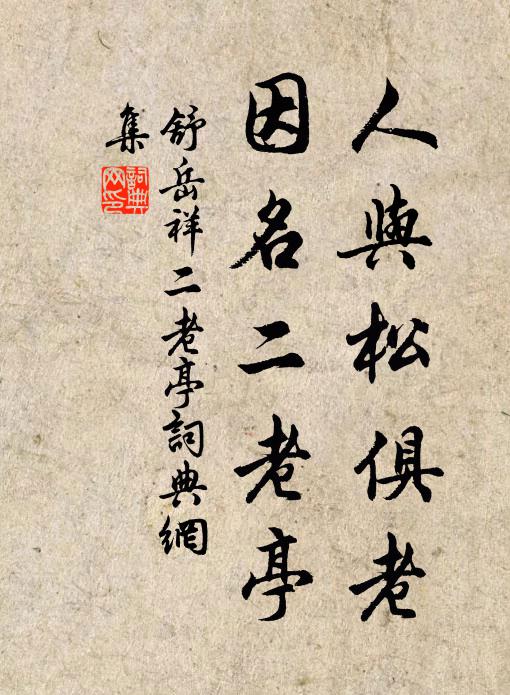 人與松俱老
因名二老亭
舒岳祥二老亭詞典網
集
詞典
网印